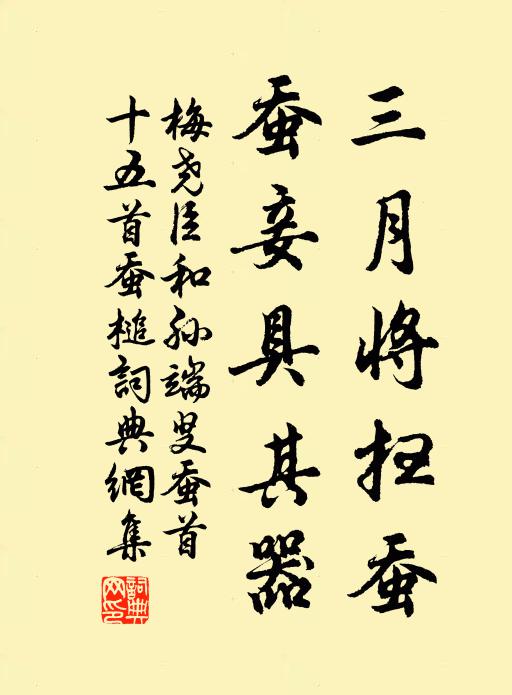 三月将扫蚕
蚕妾具其器
梅尧臣和孙端叟蚕首
十五首蚕槌詞典網集
詞典网印